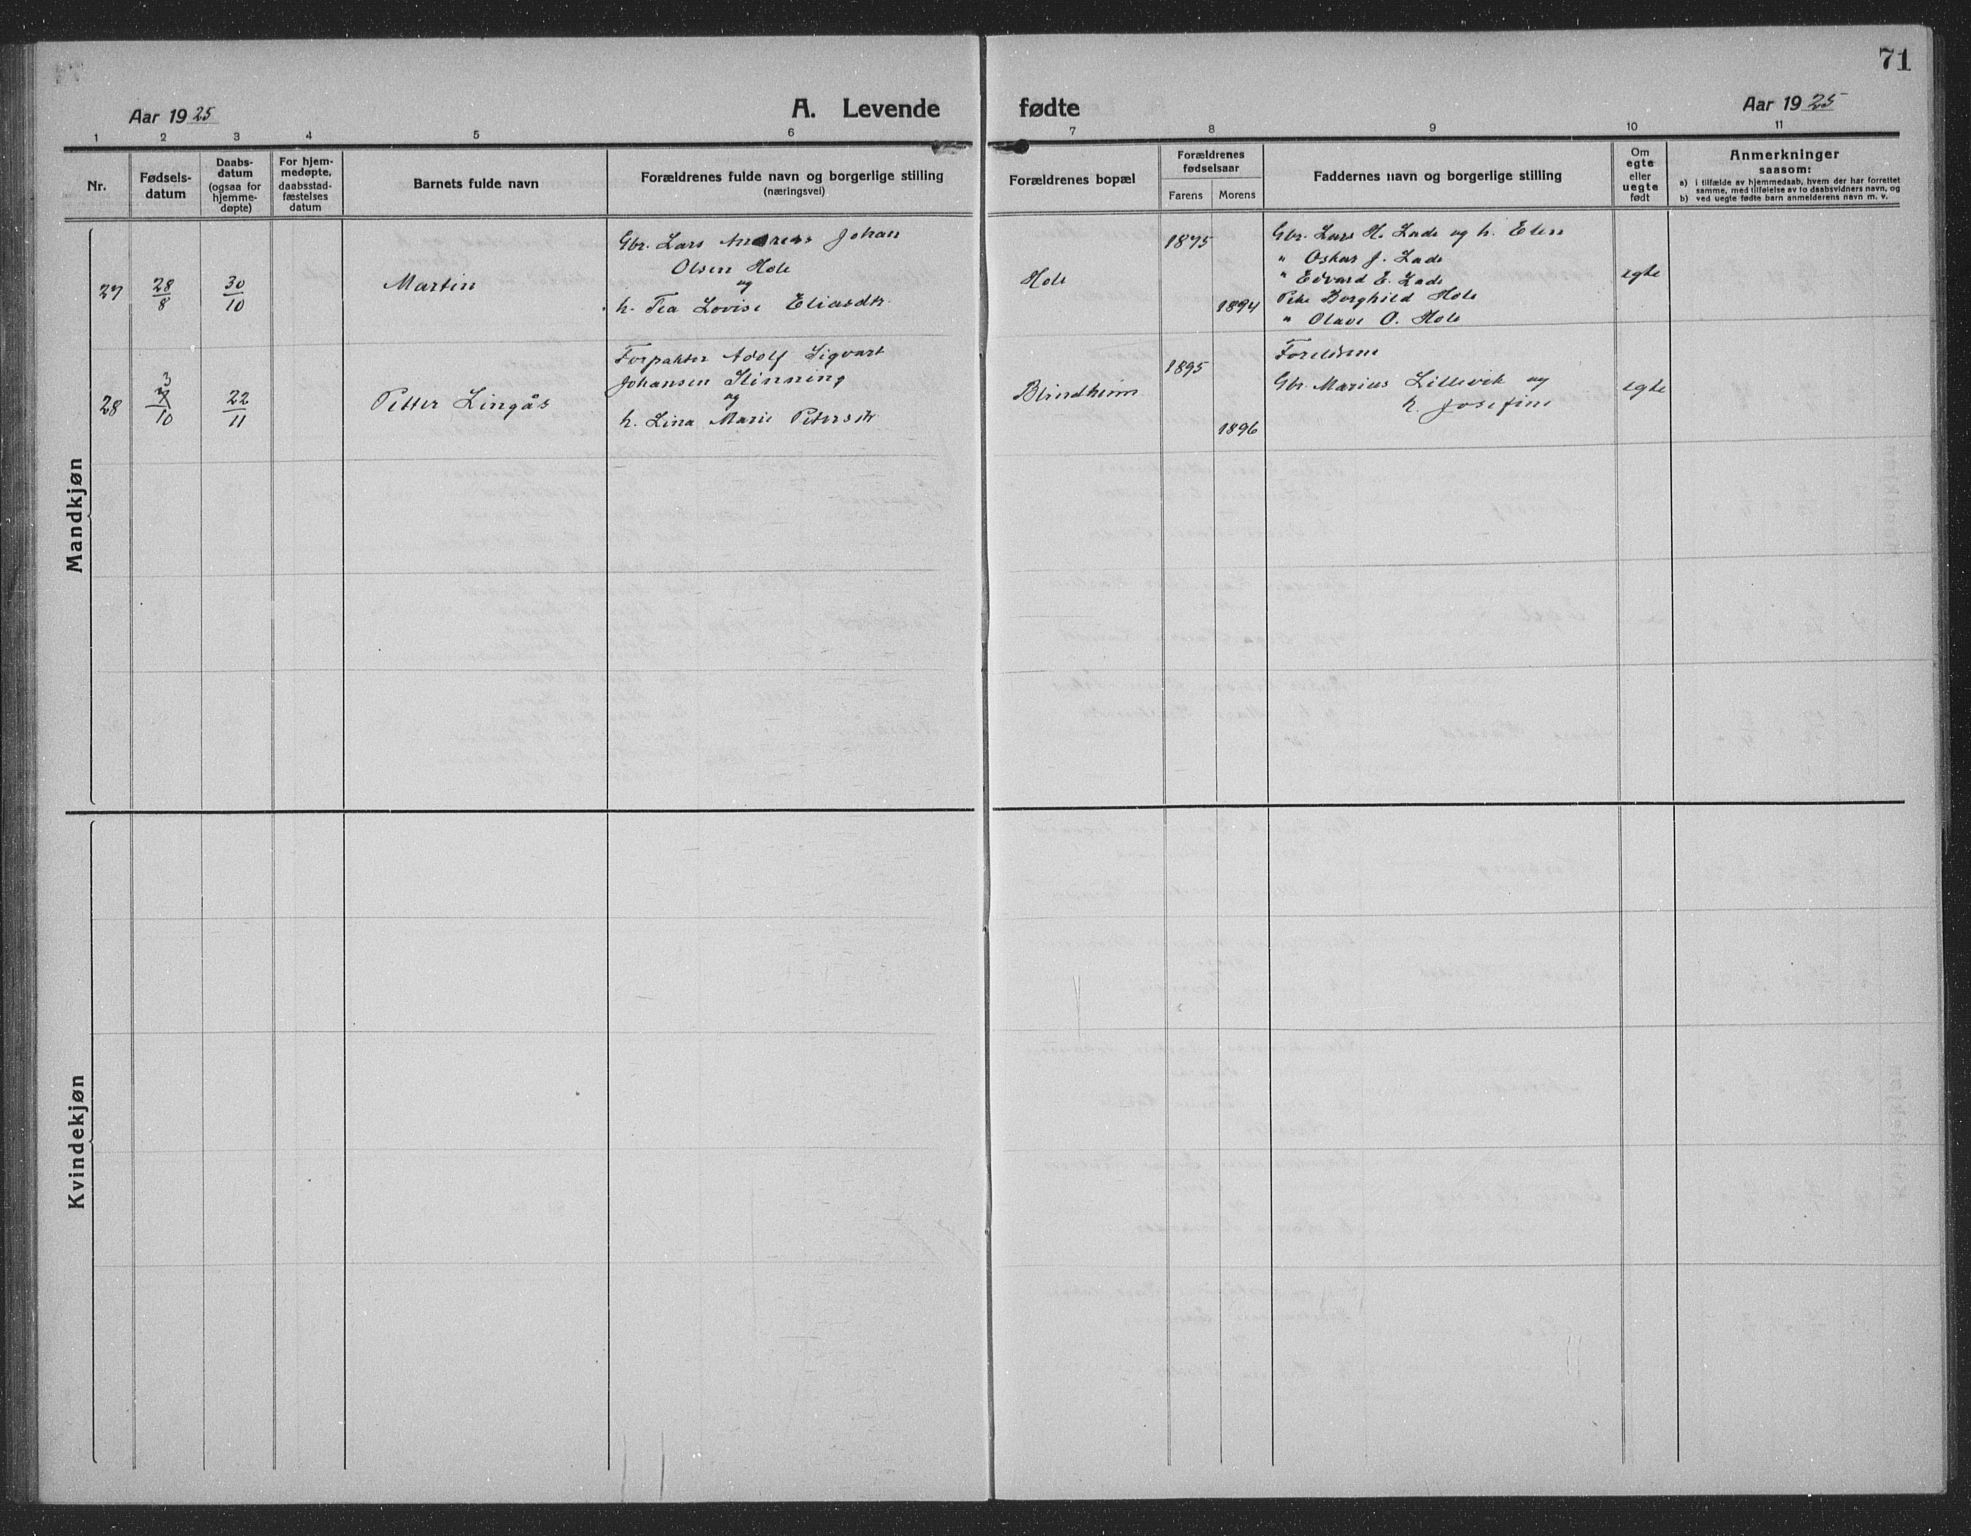 71
Aar 1925
A. Levende
fødte
Aar 1925
1 2 3 4 5 6 7 8 9 10 11
Nr.
Fødsels-
datum
Daabs-
datum
(ogsaa for
hjemme-
døpte)
For hjem-
medøpte,
daabsstad-
fæstelses
datum
Barnets fulde navn
Forældrenes fulde navn og borgerlige stilling
(næringsvei)
Forældrenes bopæl
Forældrenes
fødselsaar
Farens Morens
Faddernes navn og borgerlige stilling
Om
egte
eller
uegte
født
Anmerkninger
saasom:
a) i tilfælde av hjemmedaab, hvem der har forrettet
samme, med tilføielse av to daabsvidners navn, og
b) ved uegte fødte barn anmelderens navn m. v.
Mandkjøn
27 28/8 30/10 Martin
Gbr. Lars Andreas Johan
Olsen Hole
og
h. Tea Lovise Eliasdtr
Hole
1895
1894
Gbr. Lars H. Lade og h. Elen
" Oskar J. Lade
" Edvard E. Lade
Pike Borghild Hole
" Olave O. Hole
egte
28 3/10 22/11 Petter Lingås
Forpakter Adolf Sigvart
Johansen Slinning
og
h. Lina Marie Petersdtr
Blindheim
1895
1896
Foreldrene
Gbr. Marius Lillevik og
h. Josefine
egte
Kvindekjøn